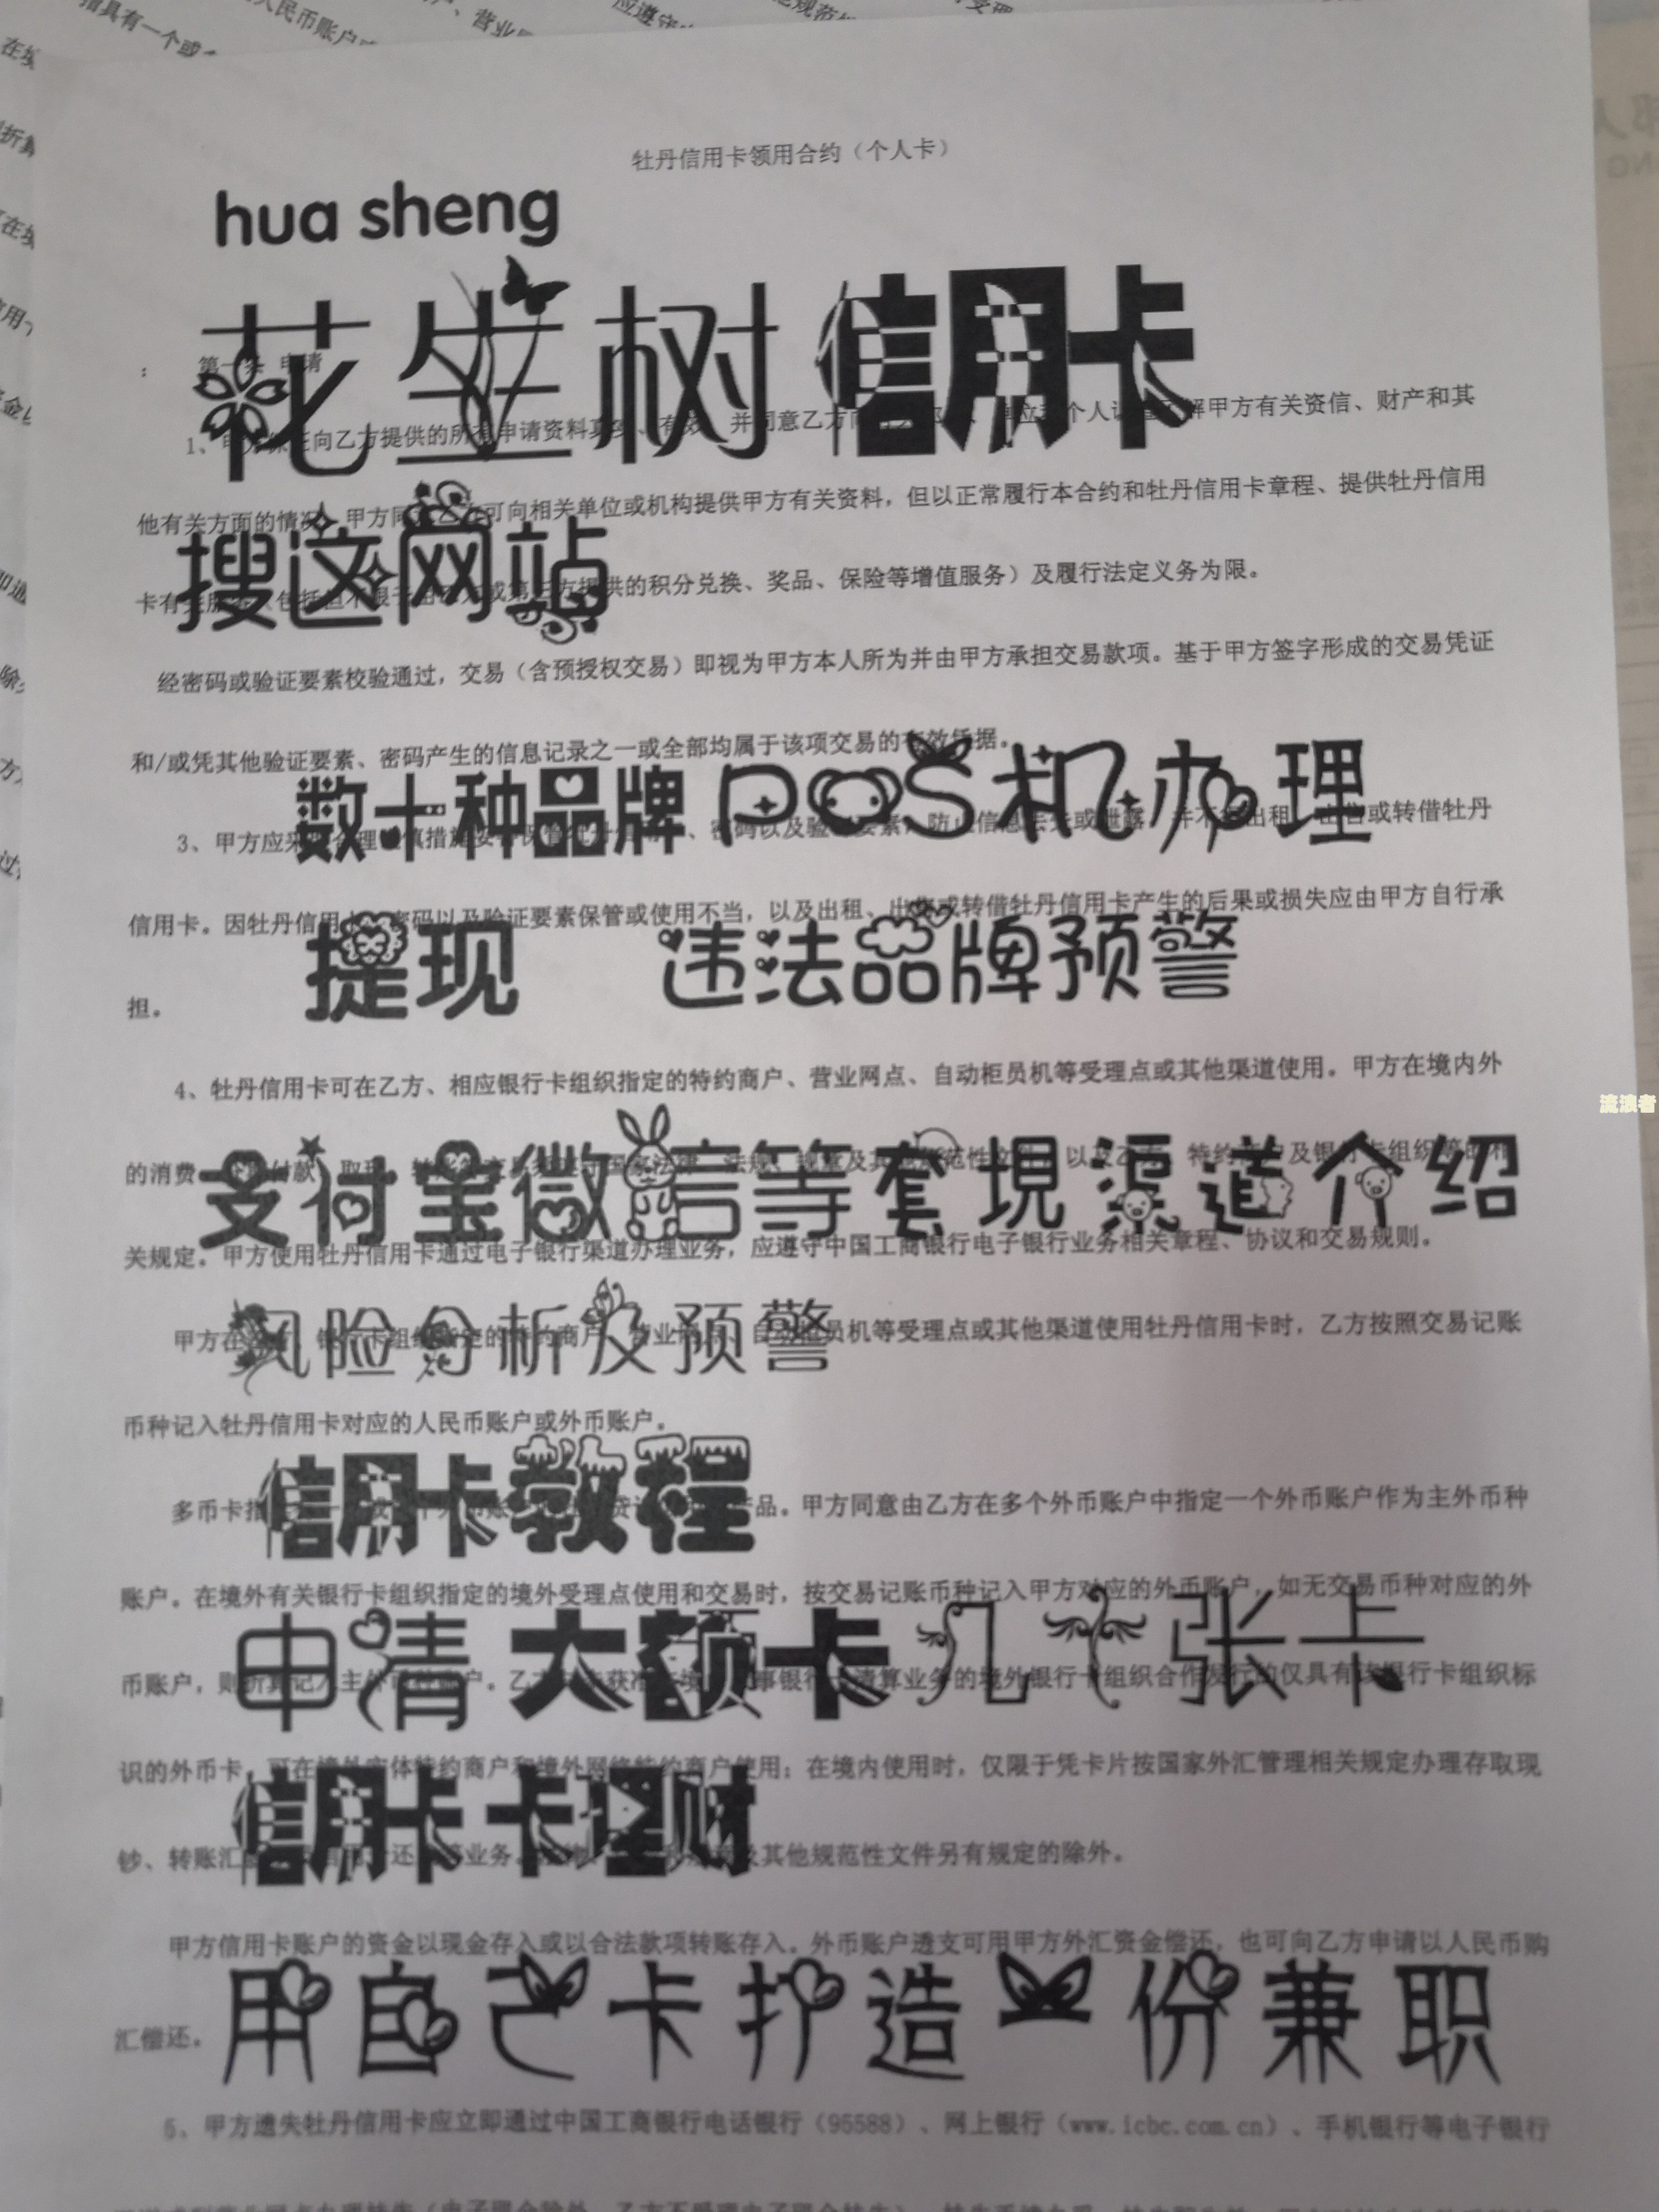 牡丹信用卡领用合约（个人卡）
hua sheng
花生树 信用卡
第一条 申请
1、甲方保证向乙方提供的所有申请资料真实、有效，并同意乙方向 个人 解甲方有关资信、财产和其
他有关方面的情况。甲方同意乙方可向相关单位或机构提供甲方有关资料，但以正常履行本合约和牡丹信用卡章程、提供牡丹信用
搜这网站
卡有关服务（包括但不限于由乙方或第三方提供的积分兑换、奖品、保险等增值服务）及履行法定义务为限。
经密码或验证要素校验通过，交易（含预授权交易）即视为甲方本人所为并由甲方承担交易款项。基于甲方签字形成的交易凭证
和/或凭其他验证要素、密码产生的信息记录之一或全部均属于该项交易的有效凭据。
数十种品牌 POS机办理
3、甲方应采取合理谨慎措施妥善保管牡丹信用卡、密码以及验证要素，防止信息丢失或泄露，并不得出租、出售或转借牡丹
信用卡。因牡丹信用卡、密码以及验证要素保管或使用不当，以及出租、出售或转借牡丹信用卡产生的后果或损失应由甲方自行承
提现 违法品牌预警
担。
4、牡丹信用卡可在乙方、相应银行卡组织指定的特约商户、营业网点、自动柜员机等受理点或其他渠道使用。甲方在境内外
流浪者
的消费 付款、取现、 法律、法规、规章及其他规范性文件，以及乙方、特约商户及银行卡组织等的相
支付宝微信等套現渠道介绍
关规定。甲方使用牡丹信用卡通过电子银行渠道办理业务，应遵守中国工商银行电子银行业务相关章程、协议和交易规则。
风险分析及预警
甲方在 银行卡组织指定的特约商户、营业网点、自动柜员机等受理点或其他渠道使用牡丹信用卡时，乙方按照交易记账
币种记入牡丹信用卡对应的人民币账户或外币账户。
信用卡教程
多币卡指 产品。甲方同意由乙方在多个外币账户中指定一个外币账户作为主外币种
账户。在境外有关银行卡组织指定的境外受理点使用和交易时，按交易记账币种记入甲方对应的外币账户，如无交易币种对应的外
申请 大额卡 几十张卡
币账户，则折算记入主外币种账户。乙方 获准 境内从事银行卡清算业务的境外银行卡组织合作发行的仅具有该银行卡组织标
识的外币卡，可在境外实体特约商户和境外网络特约商户使用；在境内使用时，仅限于凭卡片按国家外汇管理相关规定办理存取现
信用卡 卡理财
钞、转账汇 还 等业务， 及其他规范性文件另有规定的除外。
甲方信用卡账户的资金以现金存入或以合法款项转账存入。外币账户透支可用甲方外汇资金偿还，也可向乙方申请以人民币购
用自己卡打造一份兼职
汇偿还。
5、甲方遗失牡丹信用卡应立即通过中国工商银行电话银行（95588）、网上银行（www.icbc.com.cn）、手机银行等电子银行